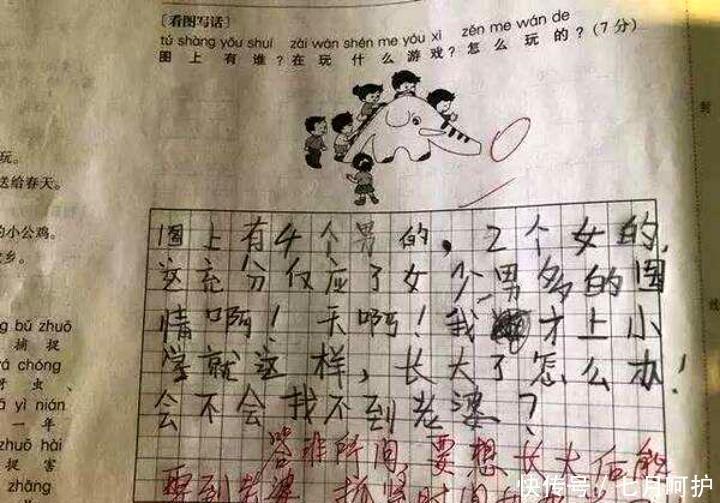 [看图写话]
tú shàng yǒu shuí zài wán shén me yóu xì zěn me wán de
图上有谁?在玩什么游戏?怎么玩的?(7分)
玩。
送给春天。
的小公鸡。
乡。
bǔ zhuō
捕捉
chóng
虫、
yì nián
一年
zhuō hài
捉害
zhāng
图上有4个男的,2个女的,
这充分仅应了女少男多的国
情啊!天啊!我才上小
学就这样,长大了怎么办!
会不会找不到老婆?
答非所问,要想长大后能
娶到老婆
快传号/七月呵护